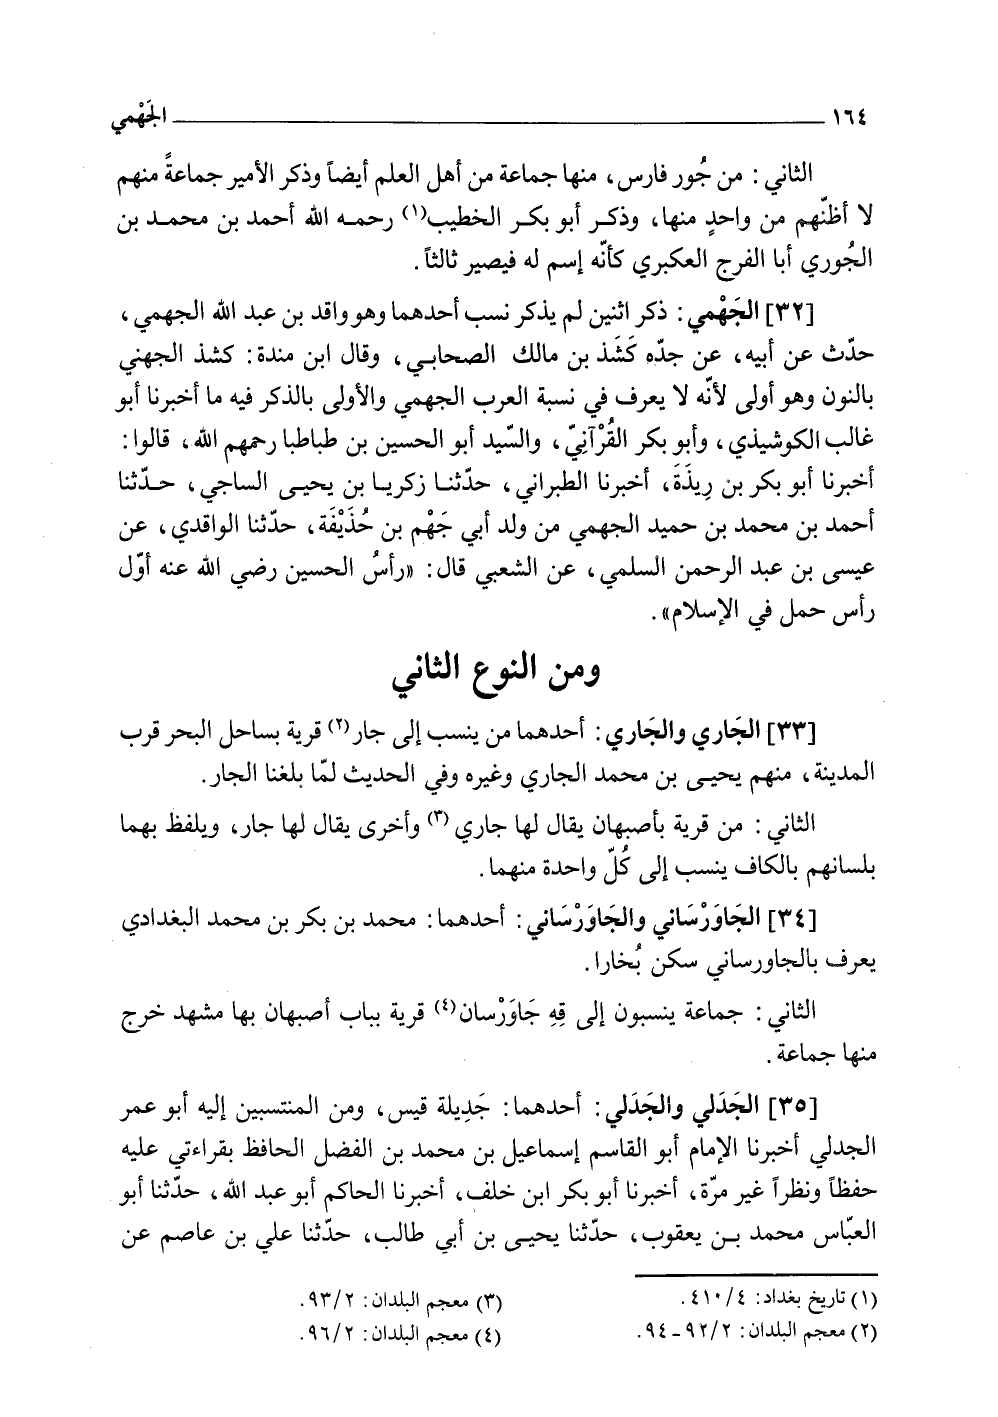 ١٦٤ الجَهْمي
الثاني: من جُور فارس، منها جماعة من أهل العلم أيضاً وذكر الأمير جماعةً منهم
لا أظنّهم من واحدٍ منها، وذكر أبو بكر الخطيب(١) رحمه الله أحمد بن محمد بن
الجُوري أبا الفرج العكبري كأنّه إسم له فيصير ثالثاً.
[٣٢] الجَهْمي: ذكر اثنين لم يذكر نسب أحدهما وهو واقد بن عبد الله الجهمي،
حدّث عن أبيه، عن جدّه كَشَذ بن مالك الصحابي، وقال ابن مندة: كشذ الجهني
بالنون وهو أولى لأنّه لا يعرف في نسبة العرب الجهمي والأولى بالذكر فيه ما أخبرنا أبو
غالب الكوشيذي، وأبو بكر القُرْآنِيّ، والسّيد أبو الحسين بن طباطبا رحمهم الله، قالوا:
أخبرنا أبو بكر بن رِيذَةَ، أخبرنا الطبراني، حدّثنا زكريا بن يحيى الساجي، حدّثنا
أحمد بن محمد بن حميد الجهمي من ولد أبي جَهْم بن حُذَيْفَة، حدّثنا الواقدي، عن
عيسى بن عبد الرحمن السلمي، عن الشعبي قال: «رأسُ الحسين رضي الله عنه أوّل
رأس حمل في الإسلام».
ومن النوع الثاني
[٣٣] الجَاري والجَاري: أحدهما من ينسب إلى جار(٢) قرية بساحل البحر قرب
المدينة، منهم يحيى بن محمد الجاري وغيره وفي الحديث لمّا بلغنا الجار.
الثاني: من قرية بأصبهان يقال لها جاري(٣) وأخرى يقال لها جار، ويلفظ بهما
بلسانهم بالكاف ينسب إلى كُلّ واحدة منهما.
[٣٤] الجَاوَرْسَاني والجَاوَرْسَاني: أحدهما: محمد بن بكر بن محمد البغدادي
يعرف بالجاورساني سكن بُخارا.
الثاني: جماعة ينسبون إلى قِهِ جَاوَرْسان(٤) قرية بباب أصبهان بها مشهد خرج
منها جماعة.
[٣٥] الجَدَلي والجَدَلي: أحدهما: جَدِيلة قيس، ومن المنتسبين إليه أبو عمر
الجدلي أخبرنا الإمام أبو القاسم إسماعيل بن محمد بن الفضل الحافظ بقراءتي عليه
حفظاً ونظراً غير مرّة، أخبرنا أبو بكر ابن خلف، أخبرنا الحاكم أبو عبد الله، حدّثنا أبو
العبّاس محمد بن يعقوب، حدّثنا يحيى بن أبي طالب، حدّثنا علي بن عاصم عن
(١) تاريخ بغداد: ٤/٤١٠.
(٢) معجم البلدان: ٢/٩٢ - ٩٤.
(٣) معجم البلدان: ٢/٩٣.
(٤) معجم البلدان: ٢/٩٦.